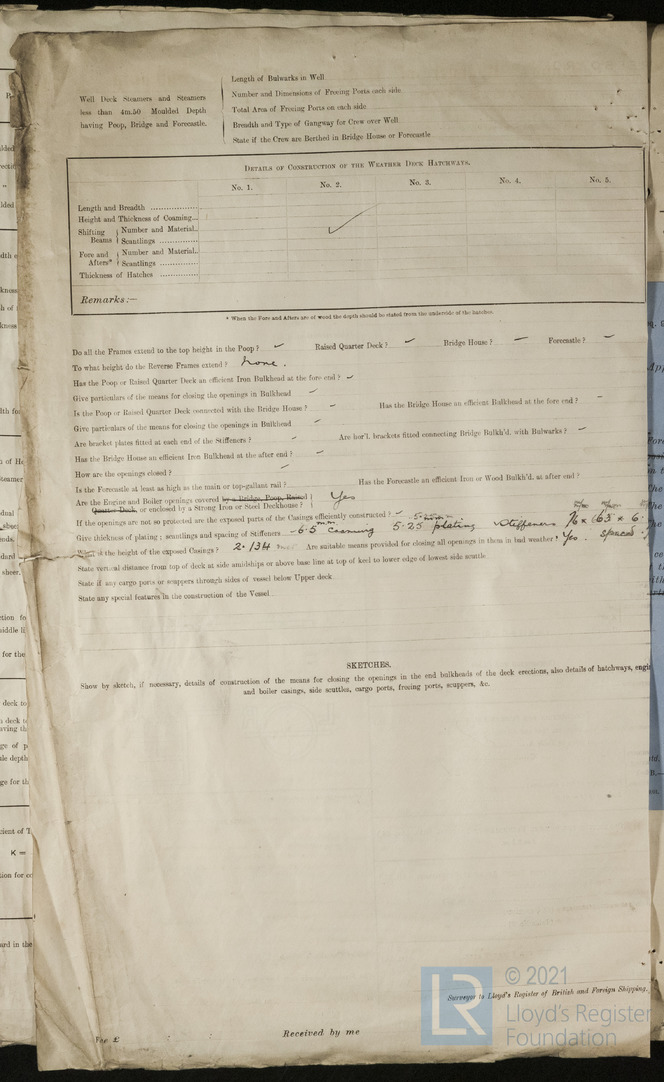 Length of Bulwarks in Well
Well Deck Steamers and Steamers less than 4m.50 Moulded Depth having Poop, Bridge and Forecastle.
Number and Dimensions of Freeing Ports each side
Total Area of Freeing Ports on each side
Breadth and Type of Gangway for Crew over Well
State if the Crew are Berthed in Bridge House or Forecastle
DETAILS OF CONSTRUCTION OF THE WEATHER DECK HATCHWAYS.
No. 1. No. 2. No. 3. No. 4. No. 5.
Length and Breadth
Height and Thickness of Coaming
Shifting Beams { Number and Material
Scantlings
Fore and Afters* { Number and Material
Scantlings
Thickness of Hatches
Remarks:—
* When the Fore and Afters are of wood the depth should be stated from the underside of the hatches.
Do all the Frames extend to the top height in the Poop? ✓ Raised Quarter Deck? ✓ Bridge House? — Forecastle? ~
To what height do the Reverse Frames extend? none.
Has the Poop or Raised Quarter Deck an efficient Iron Bulkhead at the fore end? ✓
Give particulars of the means for closing the openings in Bulkhead
Is the Poop or Raised Quarter Deck connected with the Bridge House? Has the Bridge House an efficient Bulkhead at the fore end?
Give particulars of the means for closing the openings in Bulkhead
Are bracket plates fitted at each end of the Stiffeners? Are hor'l. brackets fitted connecting Bridge Bulkh'd. with Bulwarks?
Has the Bridge House an efficient Iron Bulkhead at the after end?
How are the openings closed?
Is the Forecastle at least as high as the main or top-gallant rail? Has the Forecastle an efficient Iron or Wood Bulkh'd. at after end?
Are the Engine and Boiler openings covered by a Bridge, Poop, Raised
Quarter Deck, or enclosed by a Strong Iron or Steel Deckhouse? Yes
If the openings are not so protected are the exposed parts of the Casings efficiently constructed?
Give thickness of plating; scantlings and spacing of Stiffeners 6.5 m.m. coaming 5.25 plating Stiffeners 76 × 63 × 6 spaced
What is the height of the exposed Casings? 2.134 Are suitable means provided for closing all openings in them in bad weather? Yes.
State vertical distance from top of deck at side amidships or above base line at top of keel to lower edge of lowest side scuttle
State if any cargo ports or scuppers through sides of vessel below Upper deck
State any special features in the construction of the Vessel
SKETCHES.
Show by sketch, if necessary, details of construction of the means for closing the openings in the end bulkheads of the deck erections, also details of hatchways, engi
and boiler casings, side scuttles, cargo ports, freeing ports, scuppers, &c.
Surveyor to Lloyd's Register of British and Foreign Shipping.
Received by me
Fee £
LR © 2021
Lloyd's Register
Foundation